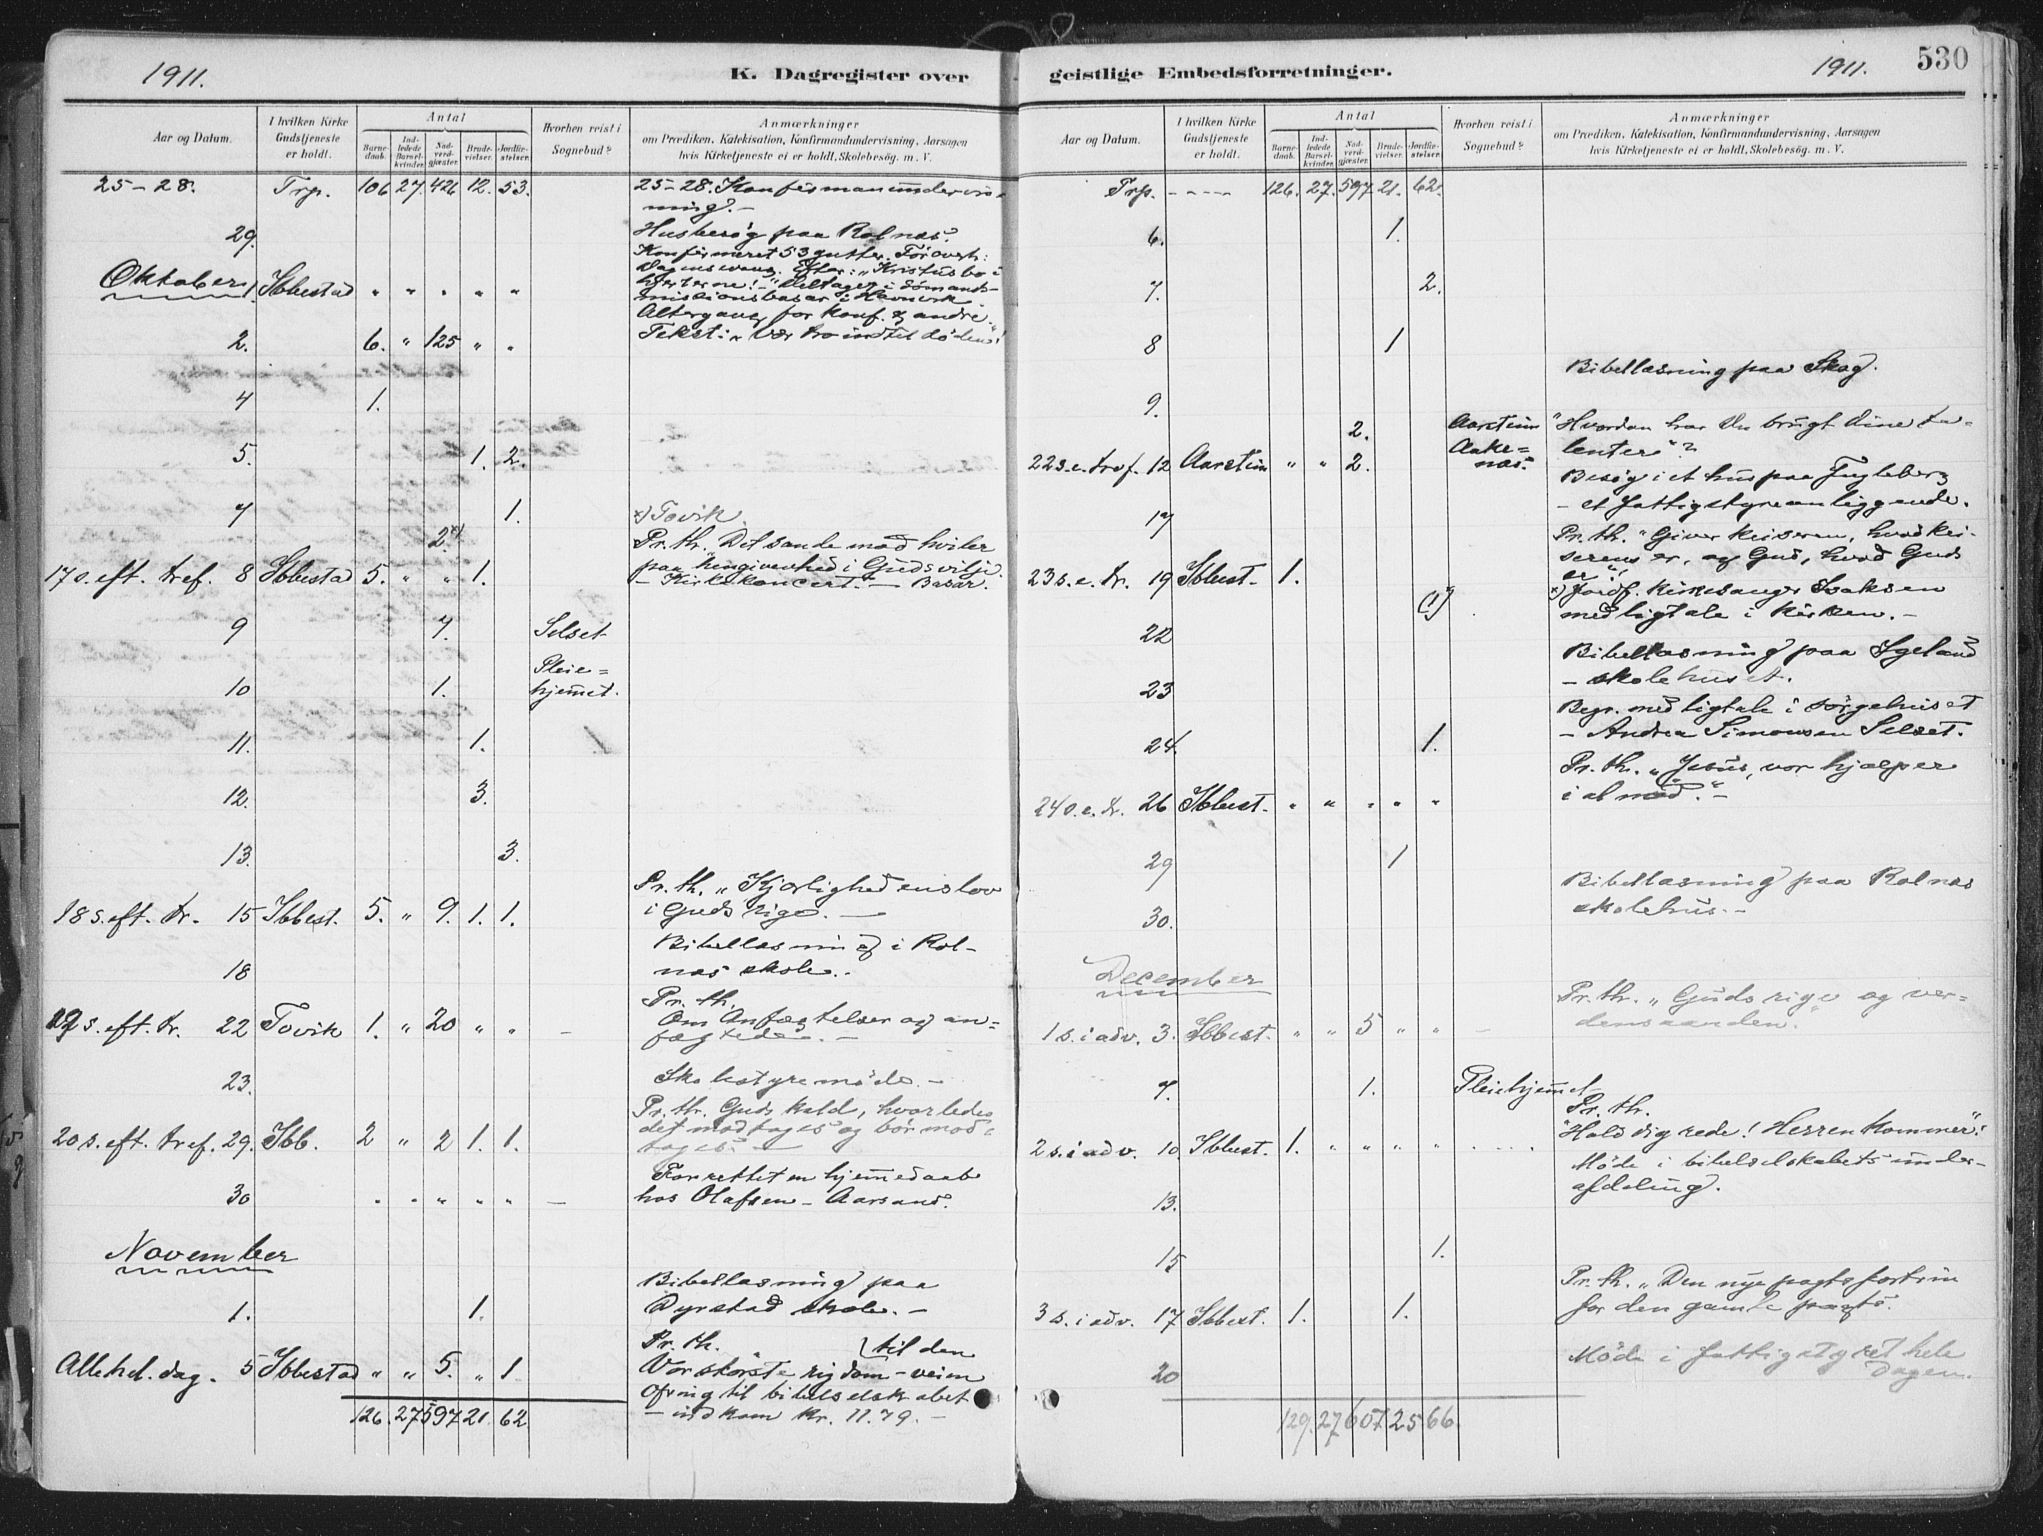 1911.
K. Dagregister over
Aar og Datum.
I hvilken Kirke Gudstjeneste er holdt.
Antal
Barnedaab.
Indledede Barselkvinder.
Nadverdgjæster.
Brudevielser.
Jordfæstelser.
Hvorhen reist i Sognebud?
Anmærkninger
om Prædiken, Katekisation, Konfirmandundervisning, Aarsagen
hvis Kirketjeneste ei er holdt, Skolebesøg. m. V.
25-28. Trp. 106 27. 426 12. 53. 25-28. Konfirmanundervis-
ning. -
29. Husbesøg paa Rolnæs.
Konfirmeret 53 gutter. Før overh:
Dagens evang. Efter: "Kristus bo i
Oktober 1 Ibbestad " " " " " hjerterne! - Deltager i Sømands-
missionsbasar i Havnvik
Altergang for Konf. & andre.
2. 6. " 125 " " Tekst: "Vær tro indtil døden!"
4 1.
5. 1. 2.
7 1. x) Tovik.
2 x)
Pr. th. Det sande mod hviler
17 s. eft. tref. 8 Ibbestad 5. " " 1. paa hengivenhed i Guds vilje.
- Kirkekoncert. - Basar.
9 7. Selset
10 1. Pleie=
hjemet.
11. 1.
12. 3.
13. 3.
Pr. th. "Kjærlighedens lov
18 s. eft. tr. 15 Ibbest. 5. " 9. 1. 1. i Guds rige. -
Bibellæsning i Rol-
18 næs skole. -
Pr. th.
19 s. eft. tr. 22 Tovik 1. " 20 " " - Om Anfægtelser og an=
fægtede. -
23. Skolestyremøde. -
Pr. th. Guds kald, hvorledes
20 s. eft. tref. 29. Ibb. 2 " 2 1. 1. det modtages og bør mod-
tages. -
Forrettet en hjemedaab
30 " " " " " - hos Olafsen - Aarsand.
November
Bibellæsning paa
1. 1. Dyrstad skole. -
Pr. th. til den
Allehel. dag. 5 Ibbestad " " 5. " 1 Vor største rigdom - veien
Ofring til bibelselskabet
126. 27 597 21. 62 - indkom kr. 11.79. -
geistlige Embedsforretninger.
1911.
530
Aar og Datum.
I hvilken Kirke Gudstjeneste er holdt.
Antal
Barnedaab.
Indledede Barselkvinder.
Nadverdgjæster.
Brudevielser.
Jordfæstelser.
Hvorhen reist i Sognebud?
Anmærkninger
om Prædiken, Katekisation, Konfirmandundervisning, Aarsagen
hvis Kirketjeneste ei er holdt, Skolebesøg. m. V.
Trp. - - - - 126. 27. 597 21. 62.
6. 1.
7. 2.
8 1
Bibellæsning paa Skog.
9.
2. Aarstein "Hvordan har Du brugt dine ta-
22 s. e. tref. 12 Aarstein " " 2. Aake=
næs. lenter"?
Besøg i et hus paa Fugleberg
17 - et fattigstyreanliggende.
Pr. th. "Giver keiseren, hvad kei-
serens er, og Gud, hvad Guds
23 s. e. tr. 19 Ibbest. 1. er".
(1) x) x) Jordf. kirkesanger Isaksen
22 med ligtale i kirken. -
Bibellæsning paa Igeland
23 - skolehuset.
Begr. med ligtale i sørgehuset
24. 1. - Andrea Simonsen Selset.
Pr. th. "Jesus, vor hjælper
24 s. e. tr. 26 Ibbest. " " " " " i al nød". -
29 1
Bibellæsning paa Rolnæs
30. skolehus. -
December
Pr. th. "Guds rige og ver=
1 s. i adv. 3. Ibbest. " " 5 " " - densaanden."
7. 1. Pleiehjemet
Pr. th.
2 s. i adv. 10. Ibbest. 1. " " " " "Hold dig rede! Herren kommer"!
Møde i bibelselskabets under-
13. afdeling.
15 1.
Pr. th. "Den nye pagts fortrin
3 s. i adv. 17 Ibbest. 1. 1. for den gamle pagts.
Møde i fattigstyret hele
20 Dagen.
129. 27 607 25 66.